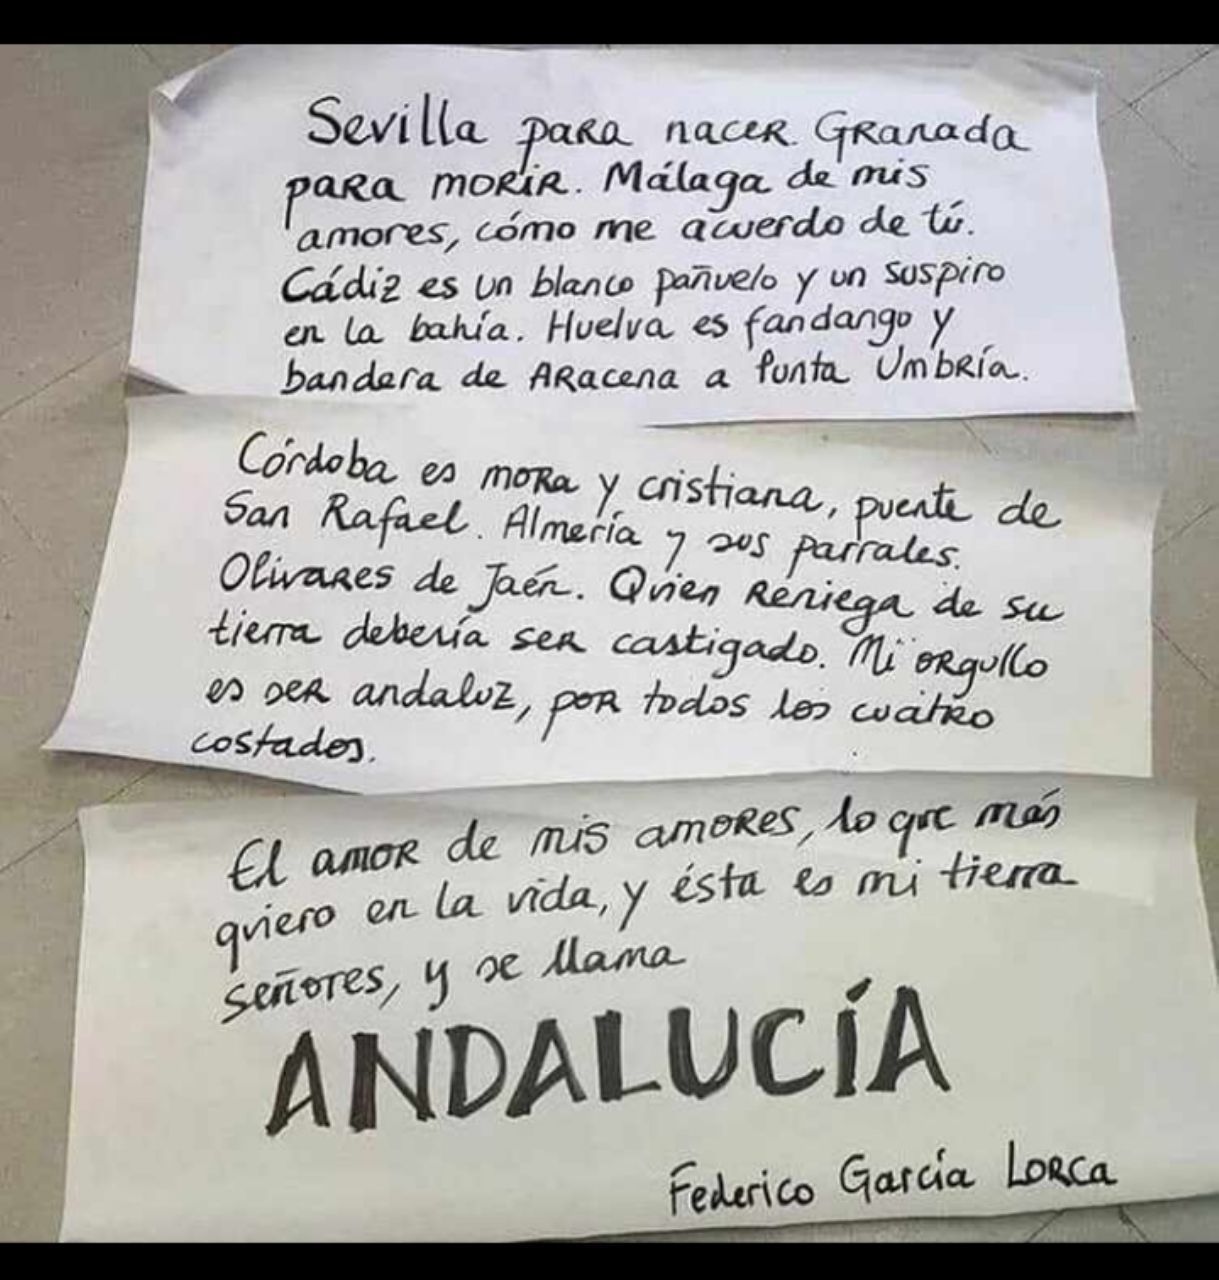 Sevilla para nacer. Granada
para morir. Málaga de mis
amores, cómo me acuerdo de tú.
Cádiz es un blanco pañuelo y un suspiro
en la bahía. Huelva es fandango y
bandera de Aracena a Punta Umbría.
Córdoba es mora y cristiana, puente de
San Rafael. Almería y sus parrales.
Olivares de Jaén. Quien reniega de su
tierra debería ser castigado. Mi orgullo
es ser andaluz, por todos los cuatro
costados.
El amor de mis amores, lo que más
quiero en la vida, y ésta es mi tierra
señores, y se llama
ANDALUCÍA
Federico García Lorca